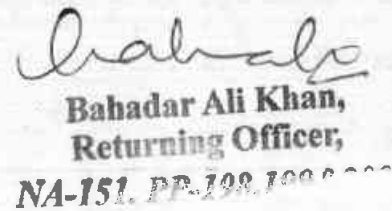 Bahadar Ali Khan,
Returning Officer,
NA-151, PP-198,199